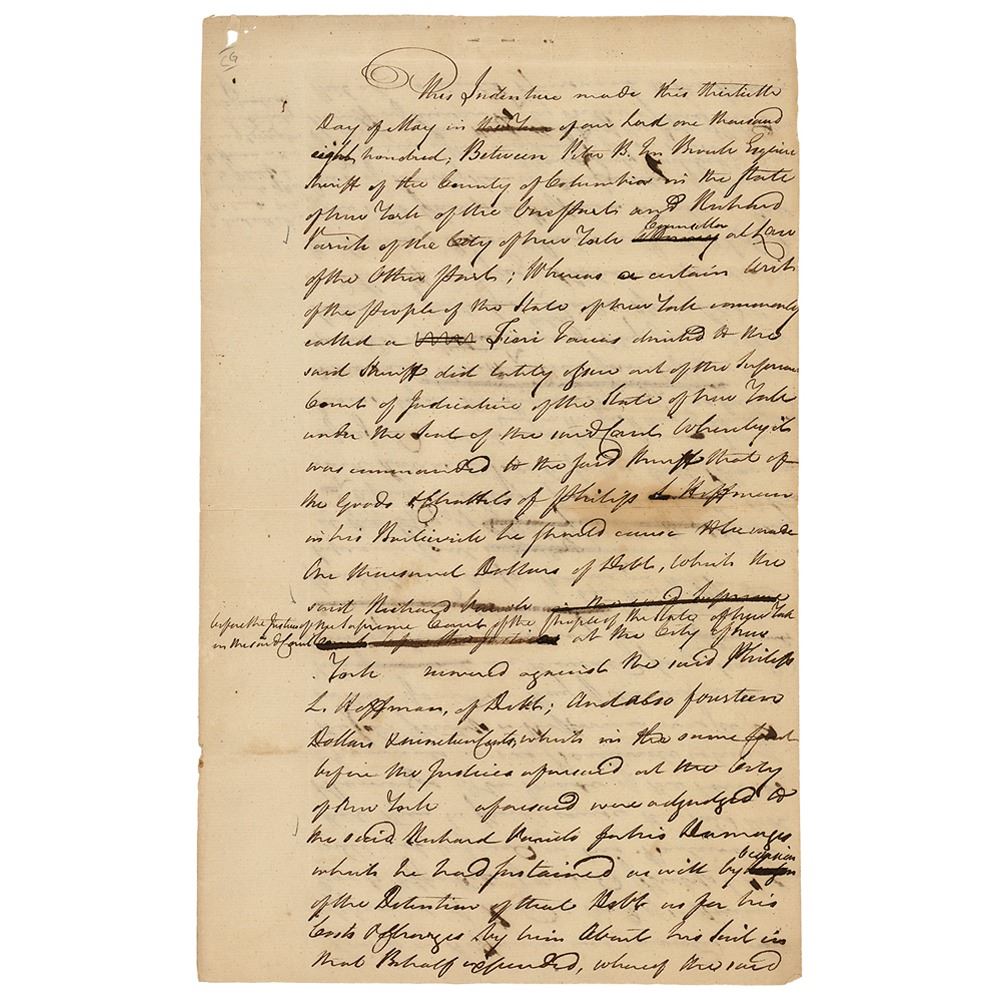 CG
This Indenture made this thirtieth
Day of May in of our Lord one thousand
eight hundred; Between Peter B. Ten Brouck Esquire
Sheriff of the County of Columbia in the State
of New York of the One Part and Richard
of the City of New York Councellor at Law
of the Other Part; Whereas a certain writ
of the People of the State of New York commonly
called a Fieri Facias directed to the
said Sheriff did lately issue out of the Supreme
Court of Judicature of the State of New York
under the Seal of the said Court Whereby it
was commanded to the said Sheriff that of
the Goods & Chattels of Philip L. Hoffman
in his Bailiwick he should cause to be made
One thousand Dollars of Debt, which the
said Richard in the said Supreme
before the Justices of the Supreme Court of the People of the State of New York
in the said Court at the City of New
York recovered against the said Philip
L. Hoffman, of Debt; And also fourteen
Dollars & nineteen Cents, which in the same Court
before the Justices aforesaid at the City
of New York aforesaid were adjudged to
the said Richard for his Damages
which he had sustained as well by occasion
of the Detention of that Debt as for his
Costs & Charges by him About his Suit in
that Behalf expended, whereof the said